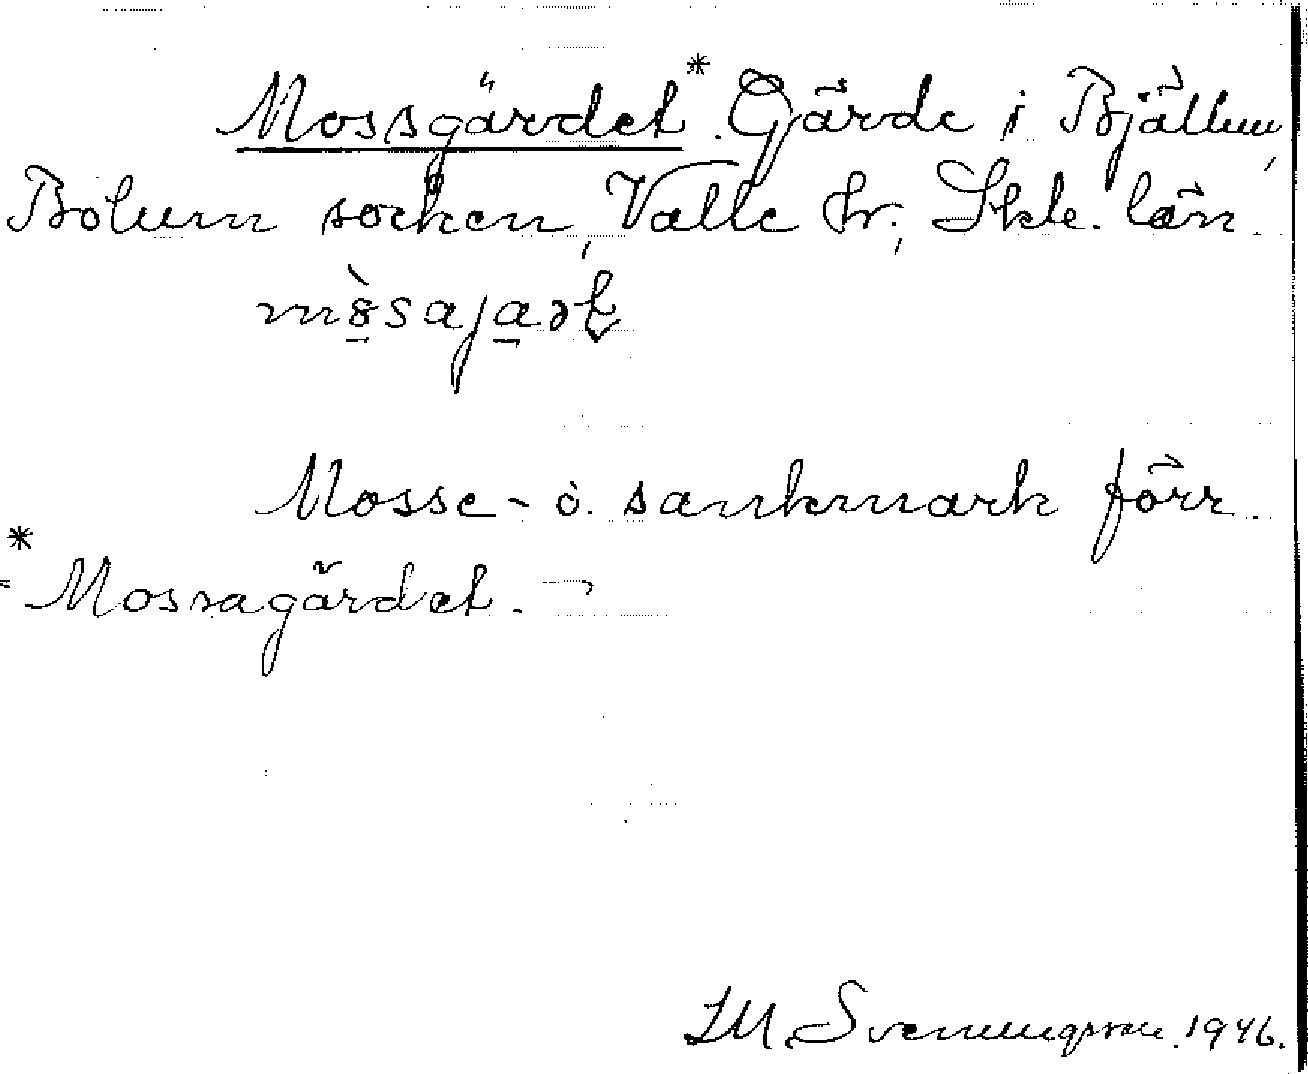 Mossgärdet.* Gärde i Bjällum,
Bolum socken, Valle hr., Skbg. län.
Mosse- o. sankmark förr.
* = Mossagärdet.
S.M. Svenungsson. 1946.